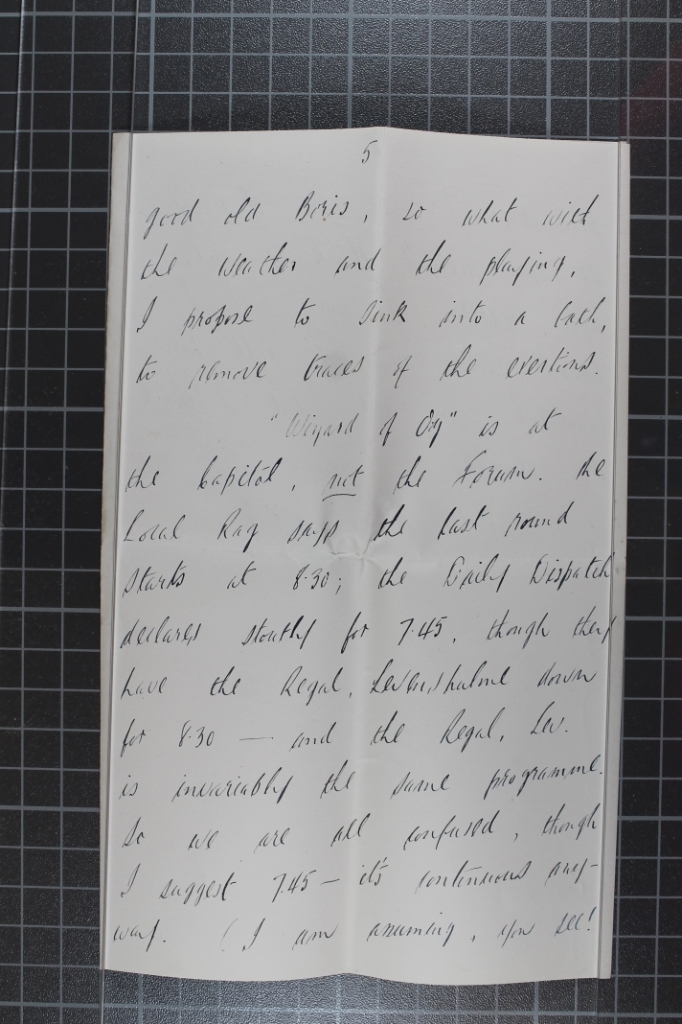 5
good old Boris, so what with
the weather and the playing,
I propose to sink into a bath,
to remove traces of the exertions.
"Wizard of Oz" is at
the Capitol, not the Forum. The
Local Rag says the last round
starts at 8.30; the Daily Dispatch
declares stoutly for 7.45, though they
have the Regal, Levenshulme down
for 8.30 — and the Regal, Lev.
is invariably the same programme.
So we are all confused, though
I suggest 7.45 — it's continuous any-
way. (I am assuming, you see!